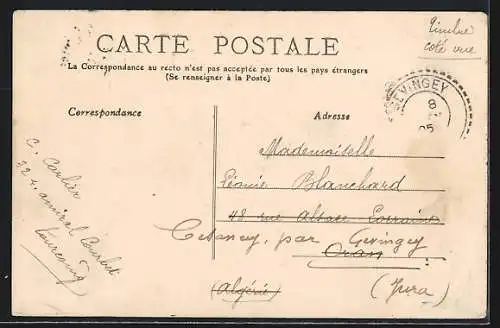 Timbre
coté vue
CARTE POSTALE
La Correspondance au recto n'est pas acceptée par tous les pays étrangers
(Se renseigner à la Poste)
GEVINGEY
8
05
Correspondance
Adresse
Mademoiselle
Léonie Blanchard
48 rue Alsace Lorraine
Cesancy, par Gevingey
Oran
(Algérie)
(Jura)
C. Carlier
32 r. amiral Courbet
Tourcoing